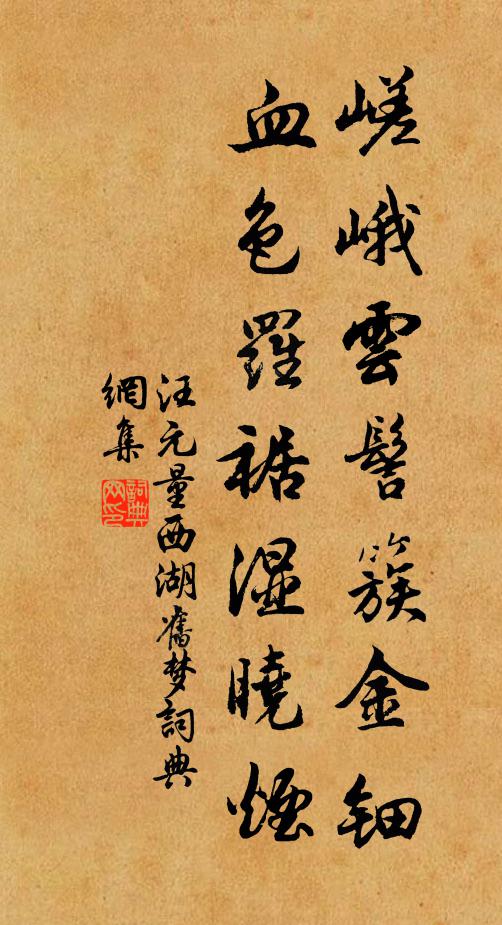 嵯峨雲髻簇金鈿
血色羅裾濕曉煙
汪元量西湖舊梦詞典
網集
詞典
网印